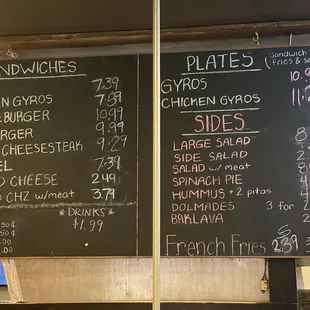 NDWICHES
7.39
N GYROS 7.59
BURGER 10.99
RGER 9.99
CHEESESTEAK 9.29
EL 7.39
D CHEESE 2.49
O CHZ w/meat 3.79
*DRINKS*
$1.99
PLATES
Sandwich
fries & s
GYROS 10.9
CHICKEN GYROS 11.
SIDES
LARGE SALAD 8
SIDE SALAD
SALAD w/ meat
SPINACH PIE 4
HUMMUS + 2 pitas 4
DOLMADES 3 for 2
BAKLAVA
French Fries S 2.39